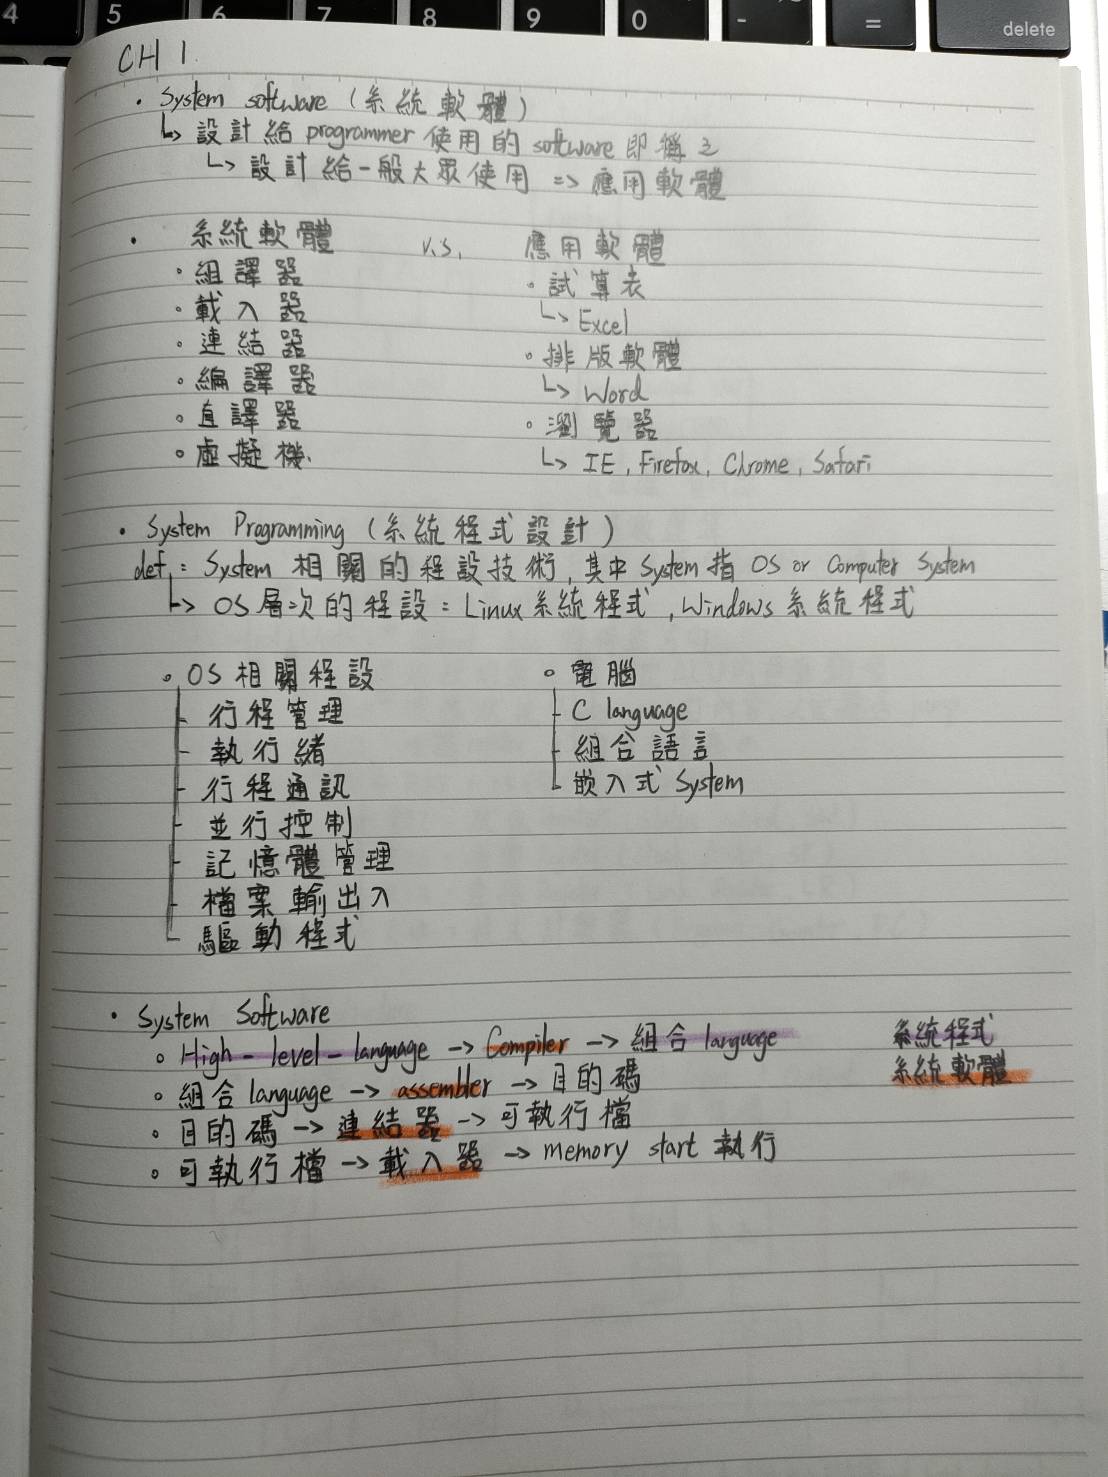 4 5 6 7 8 9 0 - = delete
CH 1.
· System software (系統軟體)
↳ 設計給 programmer 使用的 software 即稱之
↳ 設計給一般大眾使用 => 應用軟體
· 系統軟體 v.s. 應用軟體
· 組譯器 · 試算表
· 載入器 ↳ Excel
· 連結器 · 排版軟體
· 編譯器 ↳ Word
· 直譯器 · 瀏覽器
· 虛擬機 ↳ IE, Firefox, Chrome, Safari
· System Programming (系統程式設計)
def: System 相關的程設技術, 其中 System 指 OS or Computer System
↳ OS 層次的程設: Linux 系統程式, Windows 系統程式
· OS 相關程設 · 電腦
行程管理 C language
執行緒 組合語言
行程通訊 嵌入式 System
並行控制
記憶體管理
檔案輸出入
驅動程式
· System Software
· High-level-language → Compiler → 組合 language 系統程式
· 組合 language → assembler → 目的碼 系統軟體
· 目的碼 → 連結器 → 可執行檔
· 可執行檔 → 載入器 → memory start 執行